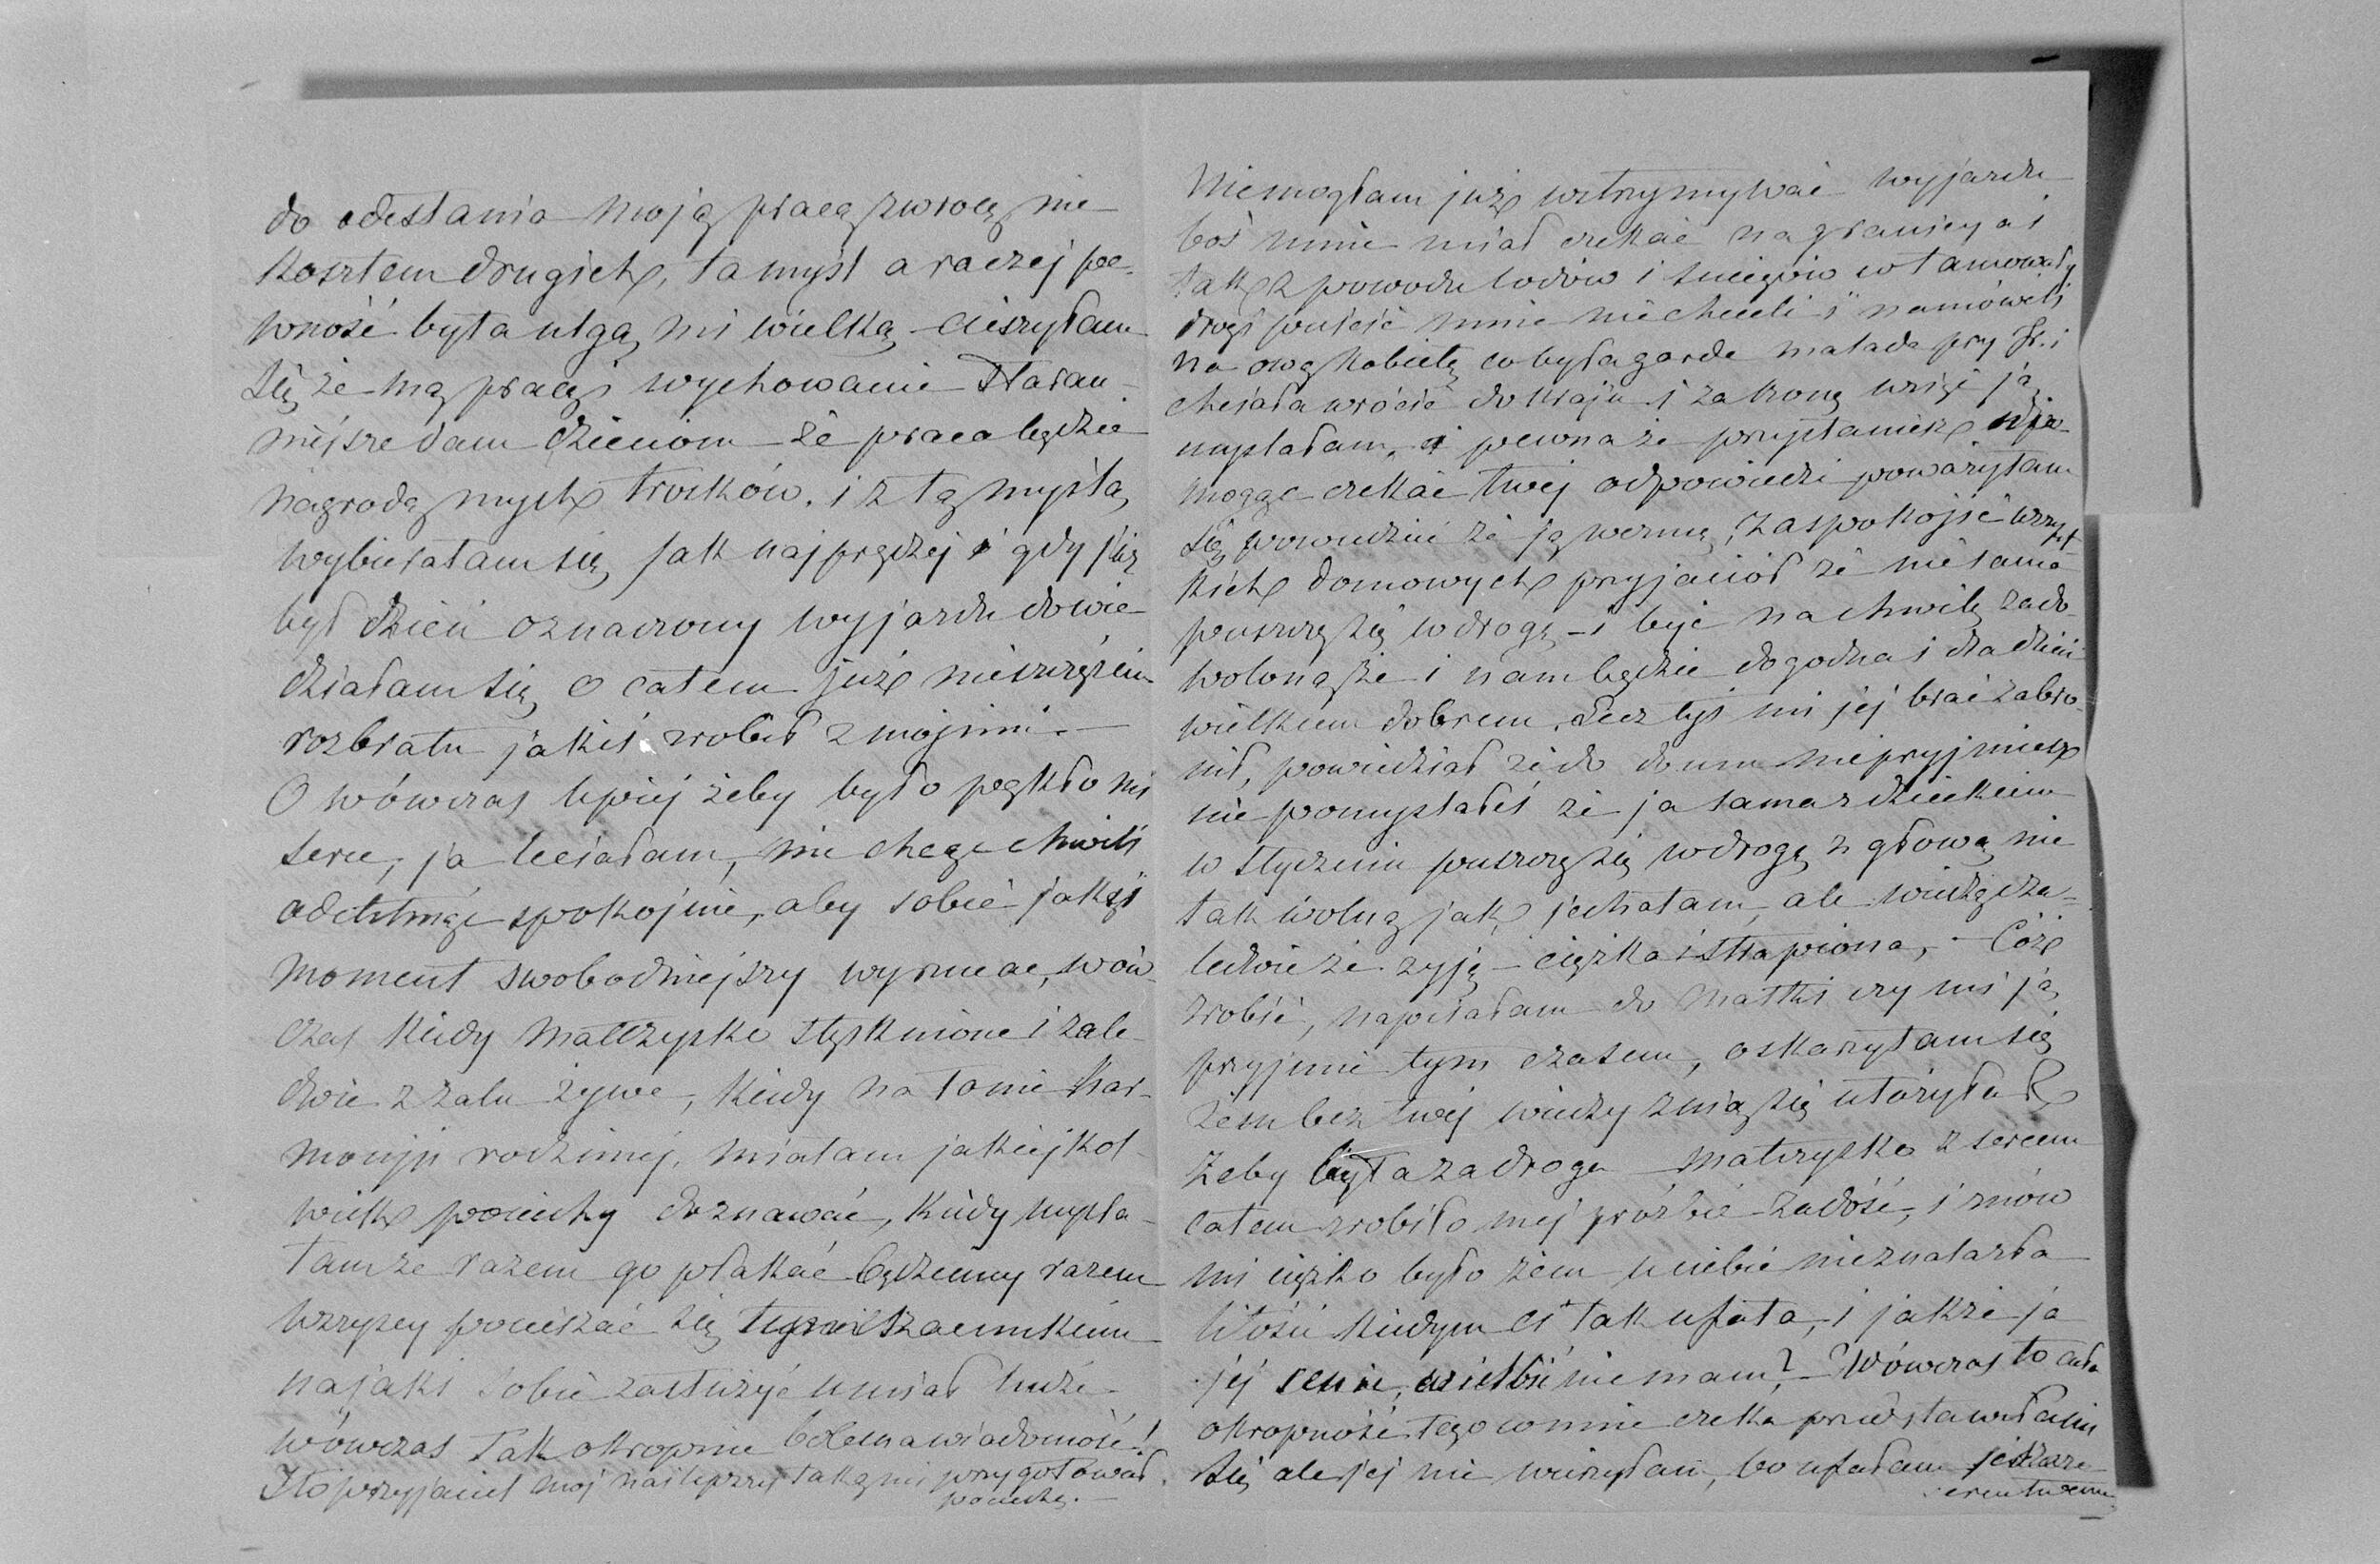 do odesłania moją pracą zwrócę nie
kosztem drugich, ta myśl a raczej pe-
wność była ulgą mi wielką – cieszyłam
się że mą pracą i wychowanie staran-
niejsze dam dzieciom – że praca będzie
nagrodą mych trosków. i z tą myślą
wybierałam się jak najprędzej i gdy już
był dzień oznaczony wyjazdu dowie-
działam się o całem już nieszczęściu
rozbratu jakiś zrobił z mojimi. –
O wówczas lepiej żeby było pękło mi
serce, ja leciałam, nie chcąc chwili
odetchnąć spokojnie, aby sobie jakąś
moment swobodniejszy wyrzucac, wów-
czas kiedy Matczysko stęsknione i zale-
dwie z żalu żywe, kiedy na łonie har-
moniji rodzinnej, miałam jakiejkol-
wiek pociechy doznawać, kiedy mysla-
łam że razem go płakać będziemy razem
wszyscy pocieszać się szacunkiem
na jaki sobie zasłużyć umiał
wówczas tak okropnie bolesna wiadomość!
I to przyjaciel mój najlepszy taką mi przygotował
pociechę. –
Niemogłam już wstrzymywać wyjazdu
boś mnie miał czekać na granicy a i
tak z powodu lodów i śniegów co tamowały
drogi puścić mnie nie chcieli i namówili
na ową kobietę co była garde malade przy Fr. i
chciała wrócić do kraju i za bonę wziąć ją
myslałam, i pewna że przystaniesz nie
mogąc czekać twej odpowiedzi poważyłam
się powiedzieć że ją wezmę, zaspokojić wszyst
kich domowych przyjaciół że nie sama
puszczę się w drogę – i być na chwilę zado-
woloną że i nam będzie dogodna i dla dzieci
wielkiem dobrem. Lecz tyś mi jej brać zabro-
nił, powiedział że do domu nie przyjmiesz
nie pomyslałeś że ja sama z dzieckiem
w styczniu puszczę się w drogę z głową nie
tak wolną jak jechałam, ale wiedząc za-
ledwie że żyję – ciężka i strapiona, – Cóż
zrobić, napisałam do Matki czy mi ją
przyjmie tym czasem, oskarżyłam się
żem bez twej wiedzy z nią się ułożyła
żeby była za drogę – Matczysko z sercem
całem zrobiło mej prośbie zadość, i znów
mi ciężko było żem u ciebie nieznalazła
litości kiedym ci tak ufała, i jakże ja
jej cenić, wielbić nie mam? – Wówczas to cała
okropność tego co mnie czeka przedstawiła mi
się ale jej nie wierzyłam, bo ufałam jeszcze
sercu twemu